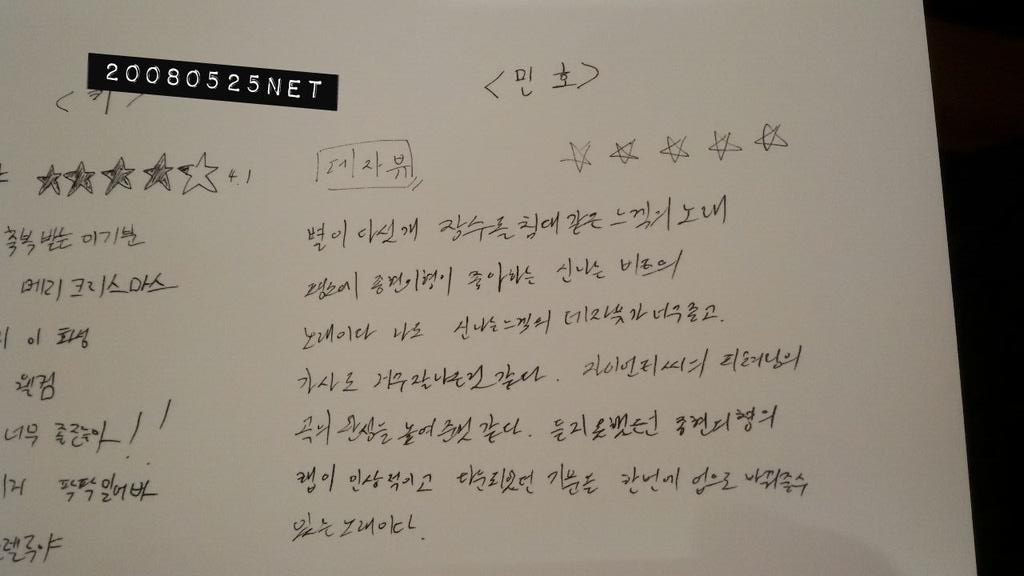 20080525NET
<키>
4.1
축복 받는 이기분
메리 크리스마스
이 화성
웬걸
너무 좋은놈아!!
팍팍 밀어봐
렐루야
<민호>
데자뷰
별이 다섯개 장수돌침대 같은 느낌의 노래
평소에 종현이형이 좋아하는 신나는 비트의
노래이다 나도 신나는느낌의 데자뷰가 너무좋고.
가사도 너무잘나온것 같다. 자이언티씨의 피쳐링이
곡의 완성을 높여준것 같다. 듣지못했던 종현이형의
랩이 인상적이고 다운되었던 기분을 한번에 업으로 바꿔줄수
있는 노래이다.